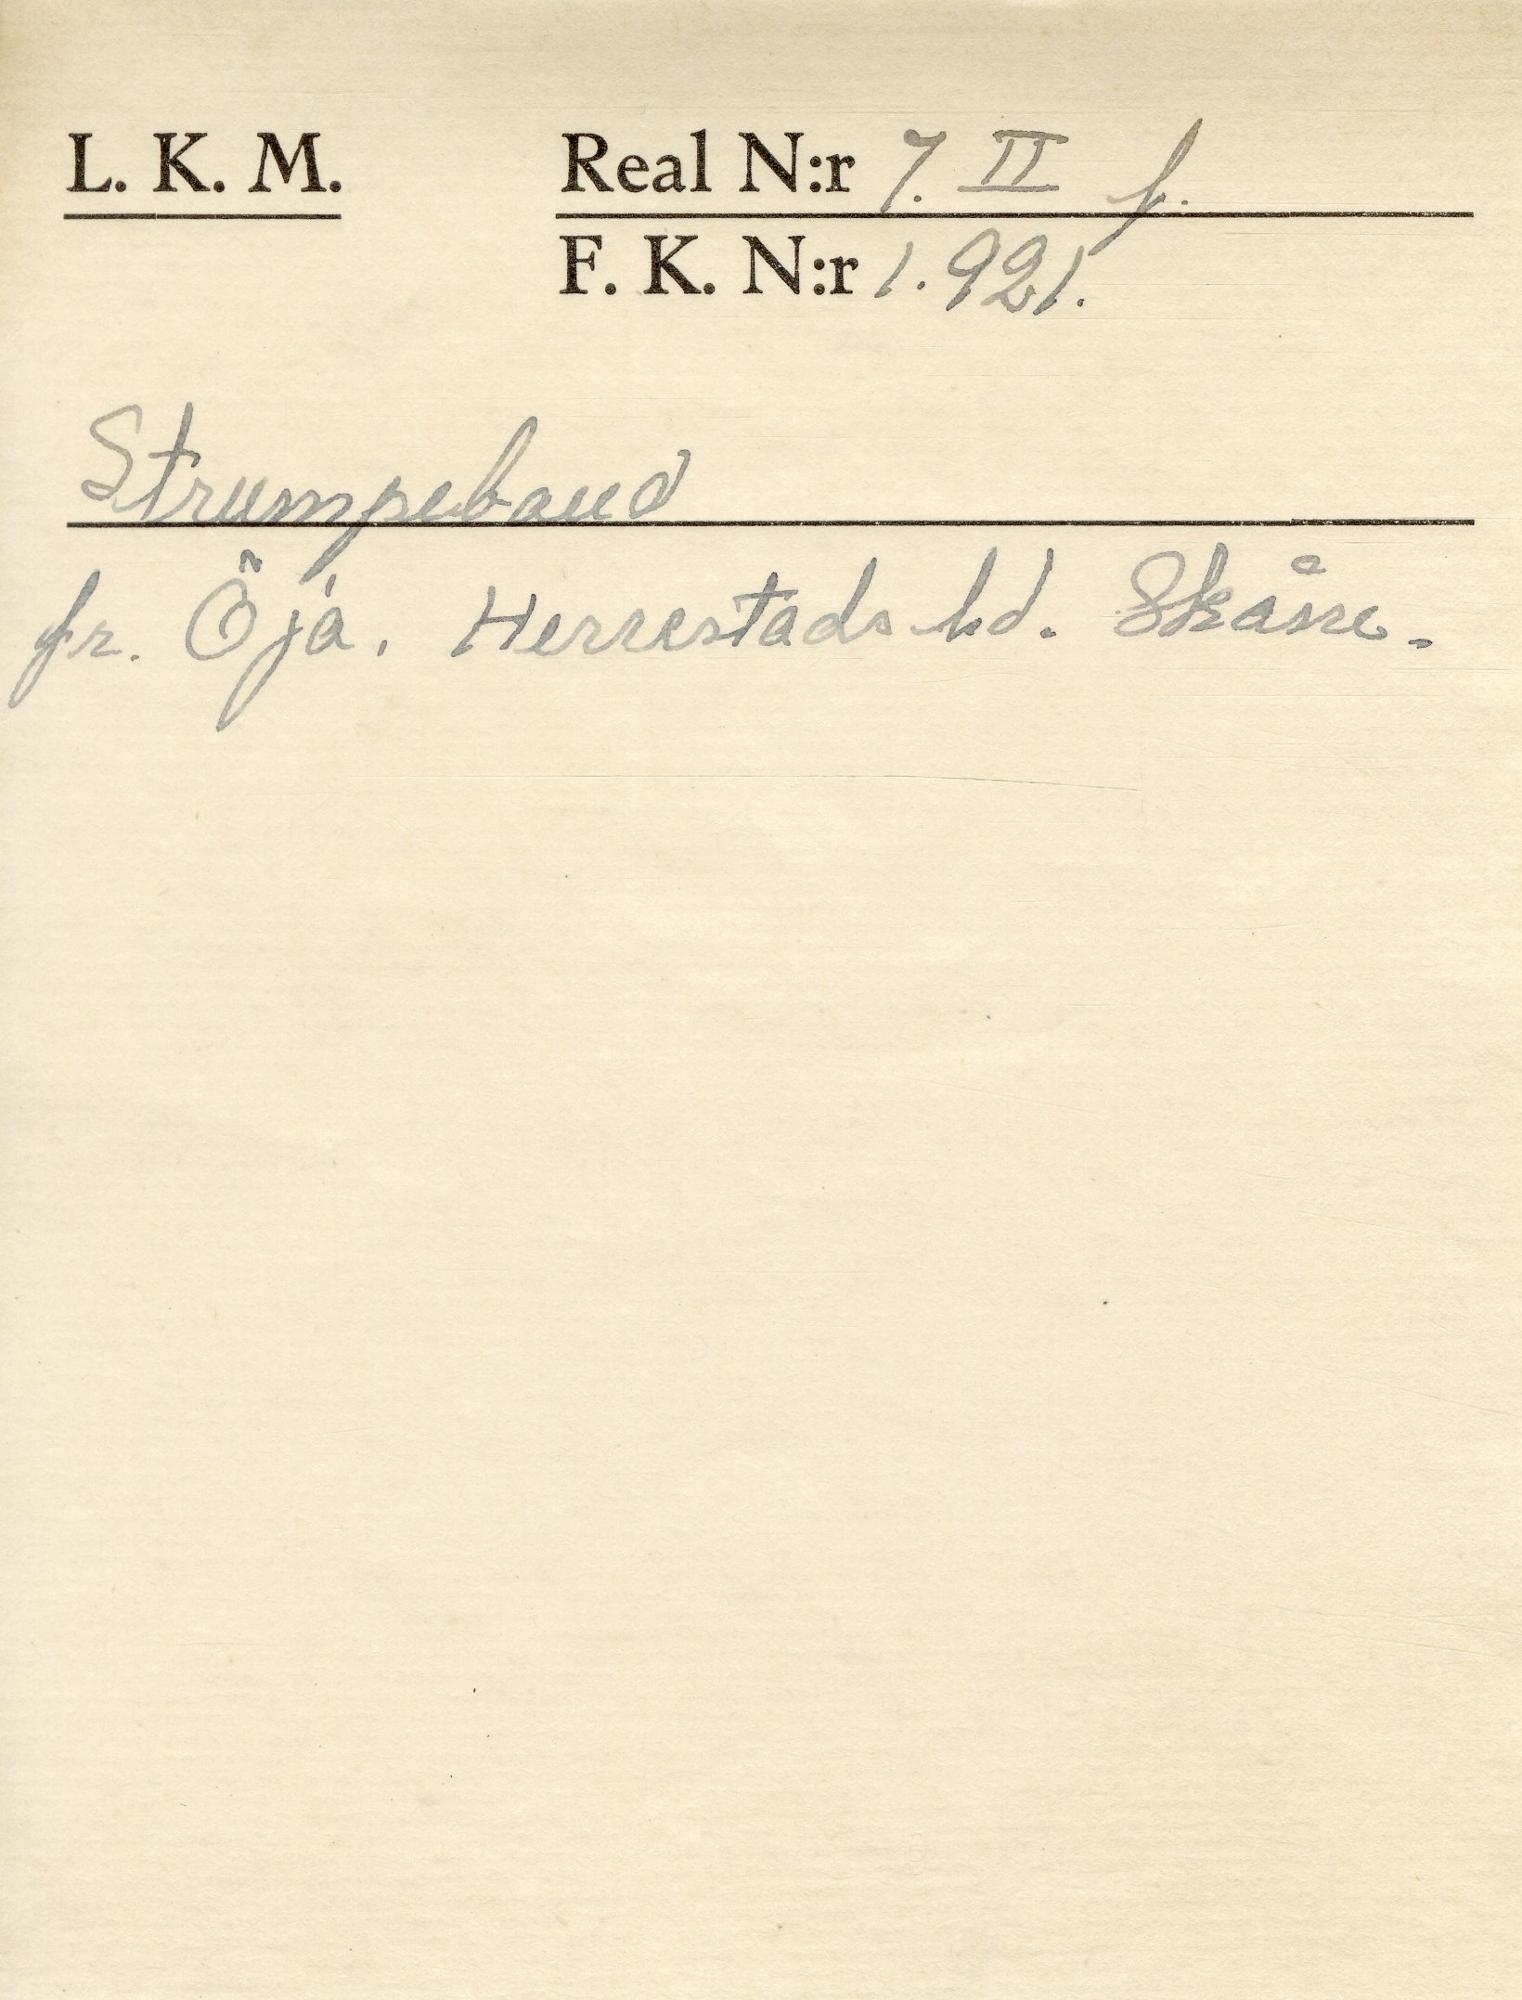 L. K. M.
Real N:r 7. II f.
F. K. N:r 1.921.
Strumpeband
fr. Öja. Herrestads hd. Skåne.